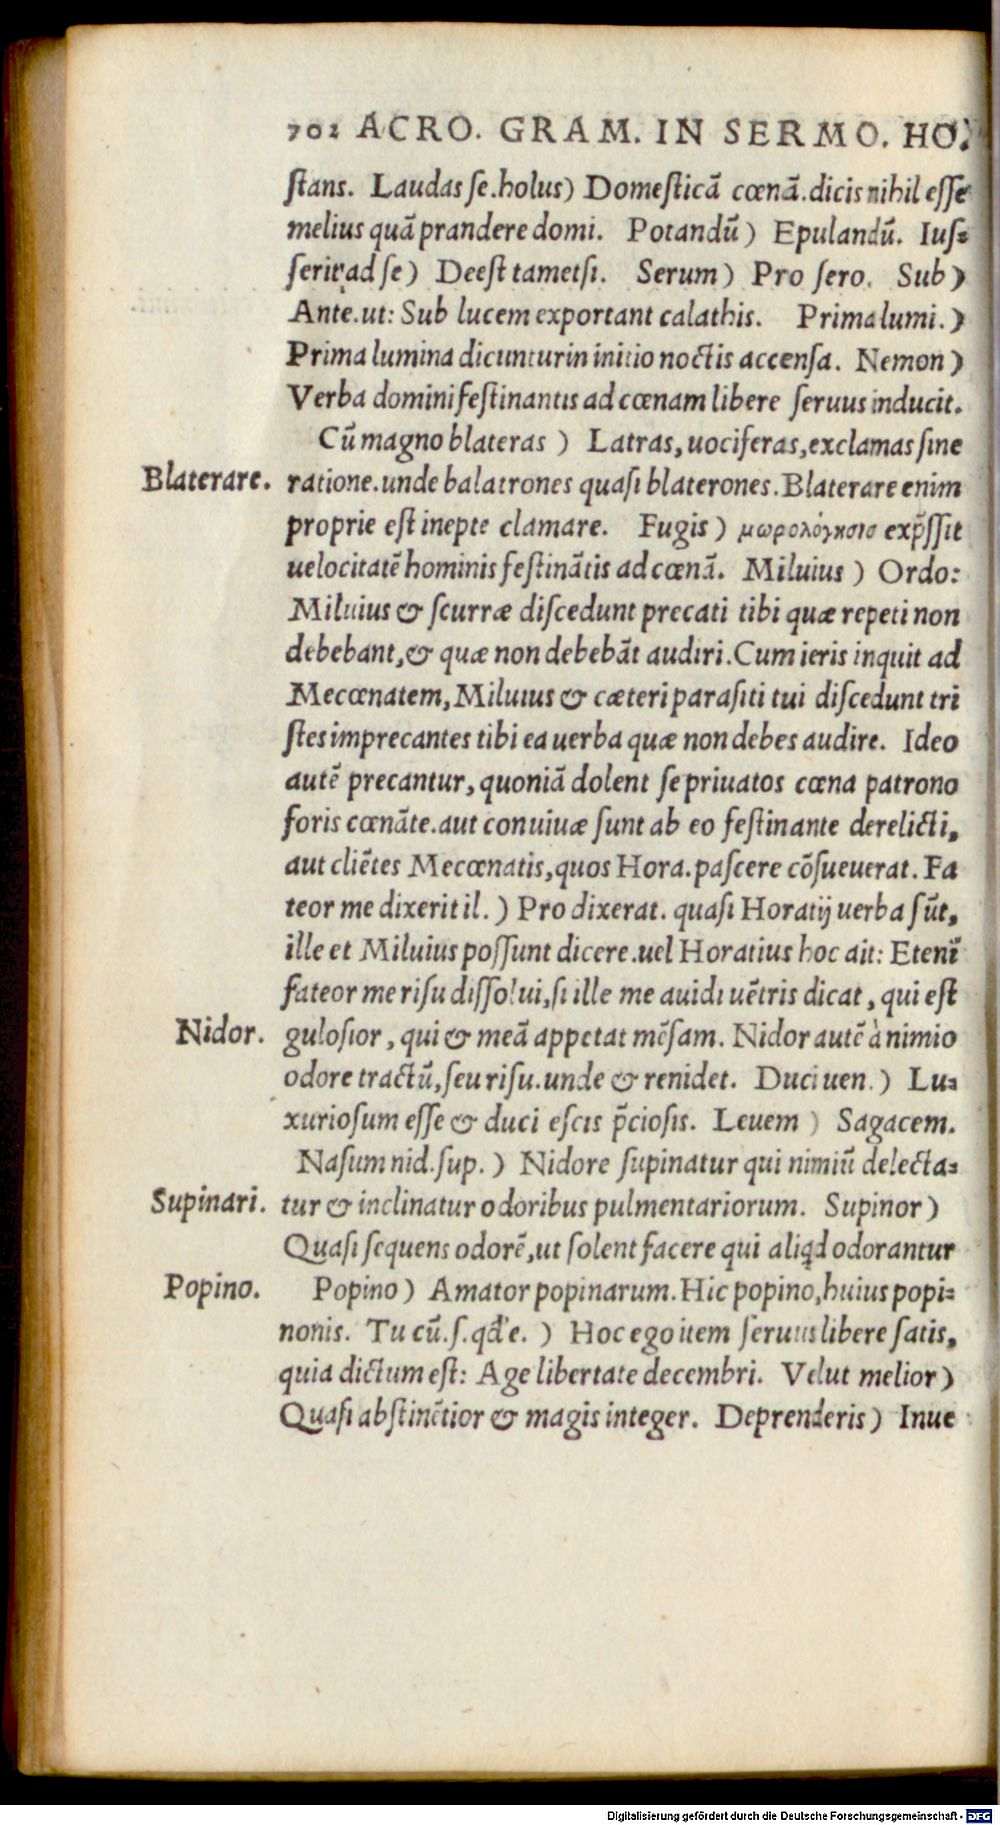 702 ACRO. GRAM. IN SERMO. HO.
ſtans. Laudas ſe.holus) Domeſticã cœnã.dicis nihil eſſe
melius quã prandere domi. Potandũ) Epulandũ. Iuſ=
ſerit ad ſe) Deeſt tametſi. Serum) Pro ſero. Sub)
Ante.ut: Sub lucem exportant calathis. Prima lumi.)
Prima lumina dicuntur in initio noctis accenſa. Nemon)
Verba domini feſtinantis ad cœnam libere ſeruus inducit.
Cũ magno blateras) Latras, uociferas, exclamas ſine
Blaterare. ratione.unde balatrones quaſi blaterones. Blaterare enim
proprie eſt inepte clamare. Fugis) exp̃ſſit
uelocitatẽ hominis feſtinãtis ad cœnã. Miluius) Ordo:
Miluius & ſcurræ diſcedunt precati tibi quæ repeti non
debebant, & quæ non debebãt audiri. Cum ieris inquit ad
Mecœnatem, Miluius & cæteri paraſiti tui diſcedunt tri
ſtes imprecantes tibi ea uerba quæ non debes audire. Ideo
autẽ precantur, quoniã dolent ſe priuatos cœna patrono
foris cœnãte.aut conuiuæ ſunt ab eo feſtinante derelicti,
aut cliẽtes Mecœnatis, quos Hora. paſcere cõſueuerat. Fa
teor me dixerit il.) Pro dixerat. quaſi Horatij uerba ſũt,
ille et Miluius poſſunt dicere.uel Horatius hoc ait: Etenĩ
fateor me riſu diſſolui, ſi ille me auidi uẽtris dicat, qui eſt
Nidor. guloſior, qui & meã appetat mẽſam. Nidor autẽ à nimio
odore tractũ, ſeu riſu.unde & renidet. Duci uen.) Lu=
xurioſum eſſe & duci eſcis p̃cioſis. Leuem) Sagacem.
Naſum nid.ſup.) Nidore ſupinatur qui nimiũ delecta=
Supinari. tur & inclinatur odoribus pulmentariorum. Supinor)
Quaſi ſequens odorẽ, ut ſolent facere qui aliq̃d odorantur
Popino. Popino) Amator popinarum. Hic popino, huius popi=
nonis. Tu cũ.ſ.qd'e.) Hoc ego item ſeruus libere ſatis,
quia dictum eſt: Age libertate decembri. Velut melior)
Quaſi abſtinẽtior & magis integer. Deprenderis) Inue
Digitalisierung gefördert durch die Deutsche Forschungsgemeinschaft - DFG